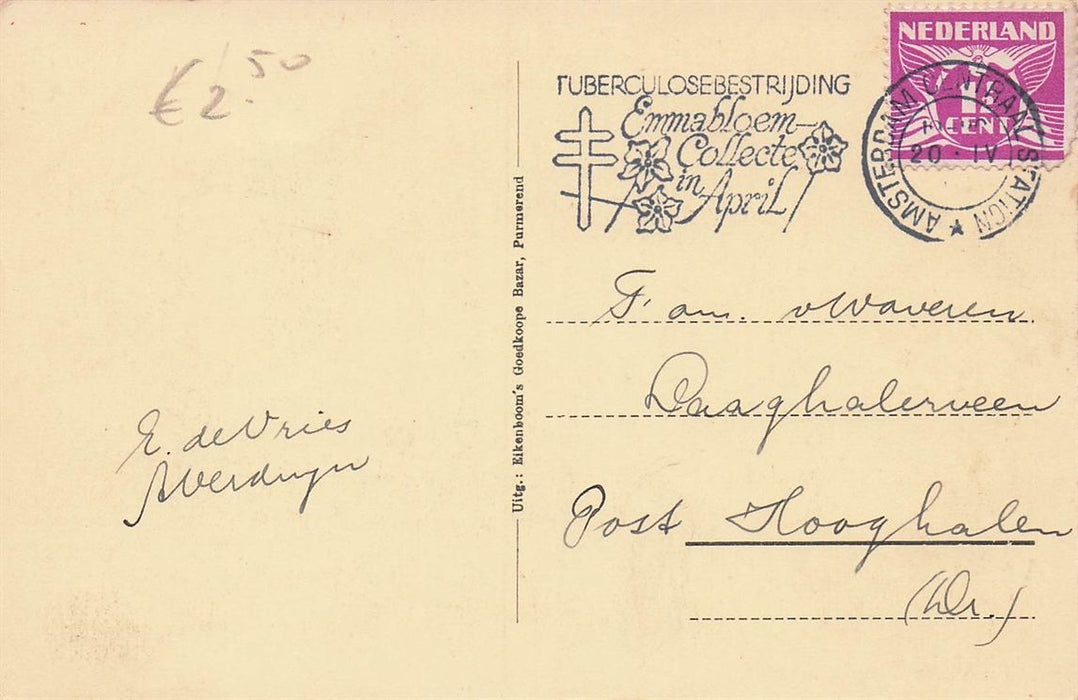 € 2.50
NEDERLAND
1½
CENT
TUBERCULOSEBESTRIJDING
Emmabloem-
Collecte
in
April
AMSTERDAM CENTRAAL STATION
20·IV
Uitg.: Eikenboom's Goedkoope Bazar, Purmerend
Fam. vWaveren
Laaghalerveen
Post Hooghalen
(Dr.)
E. de Vries